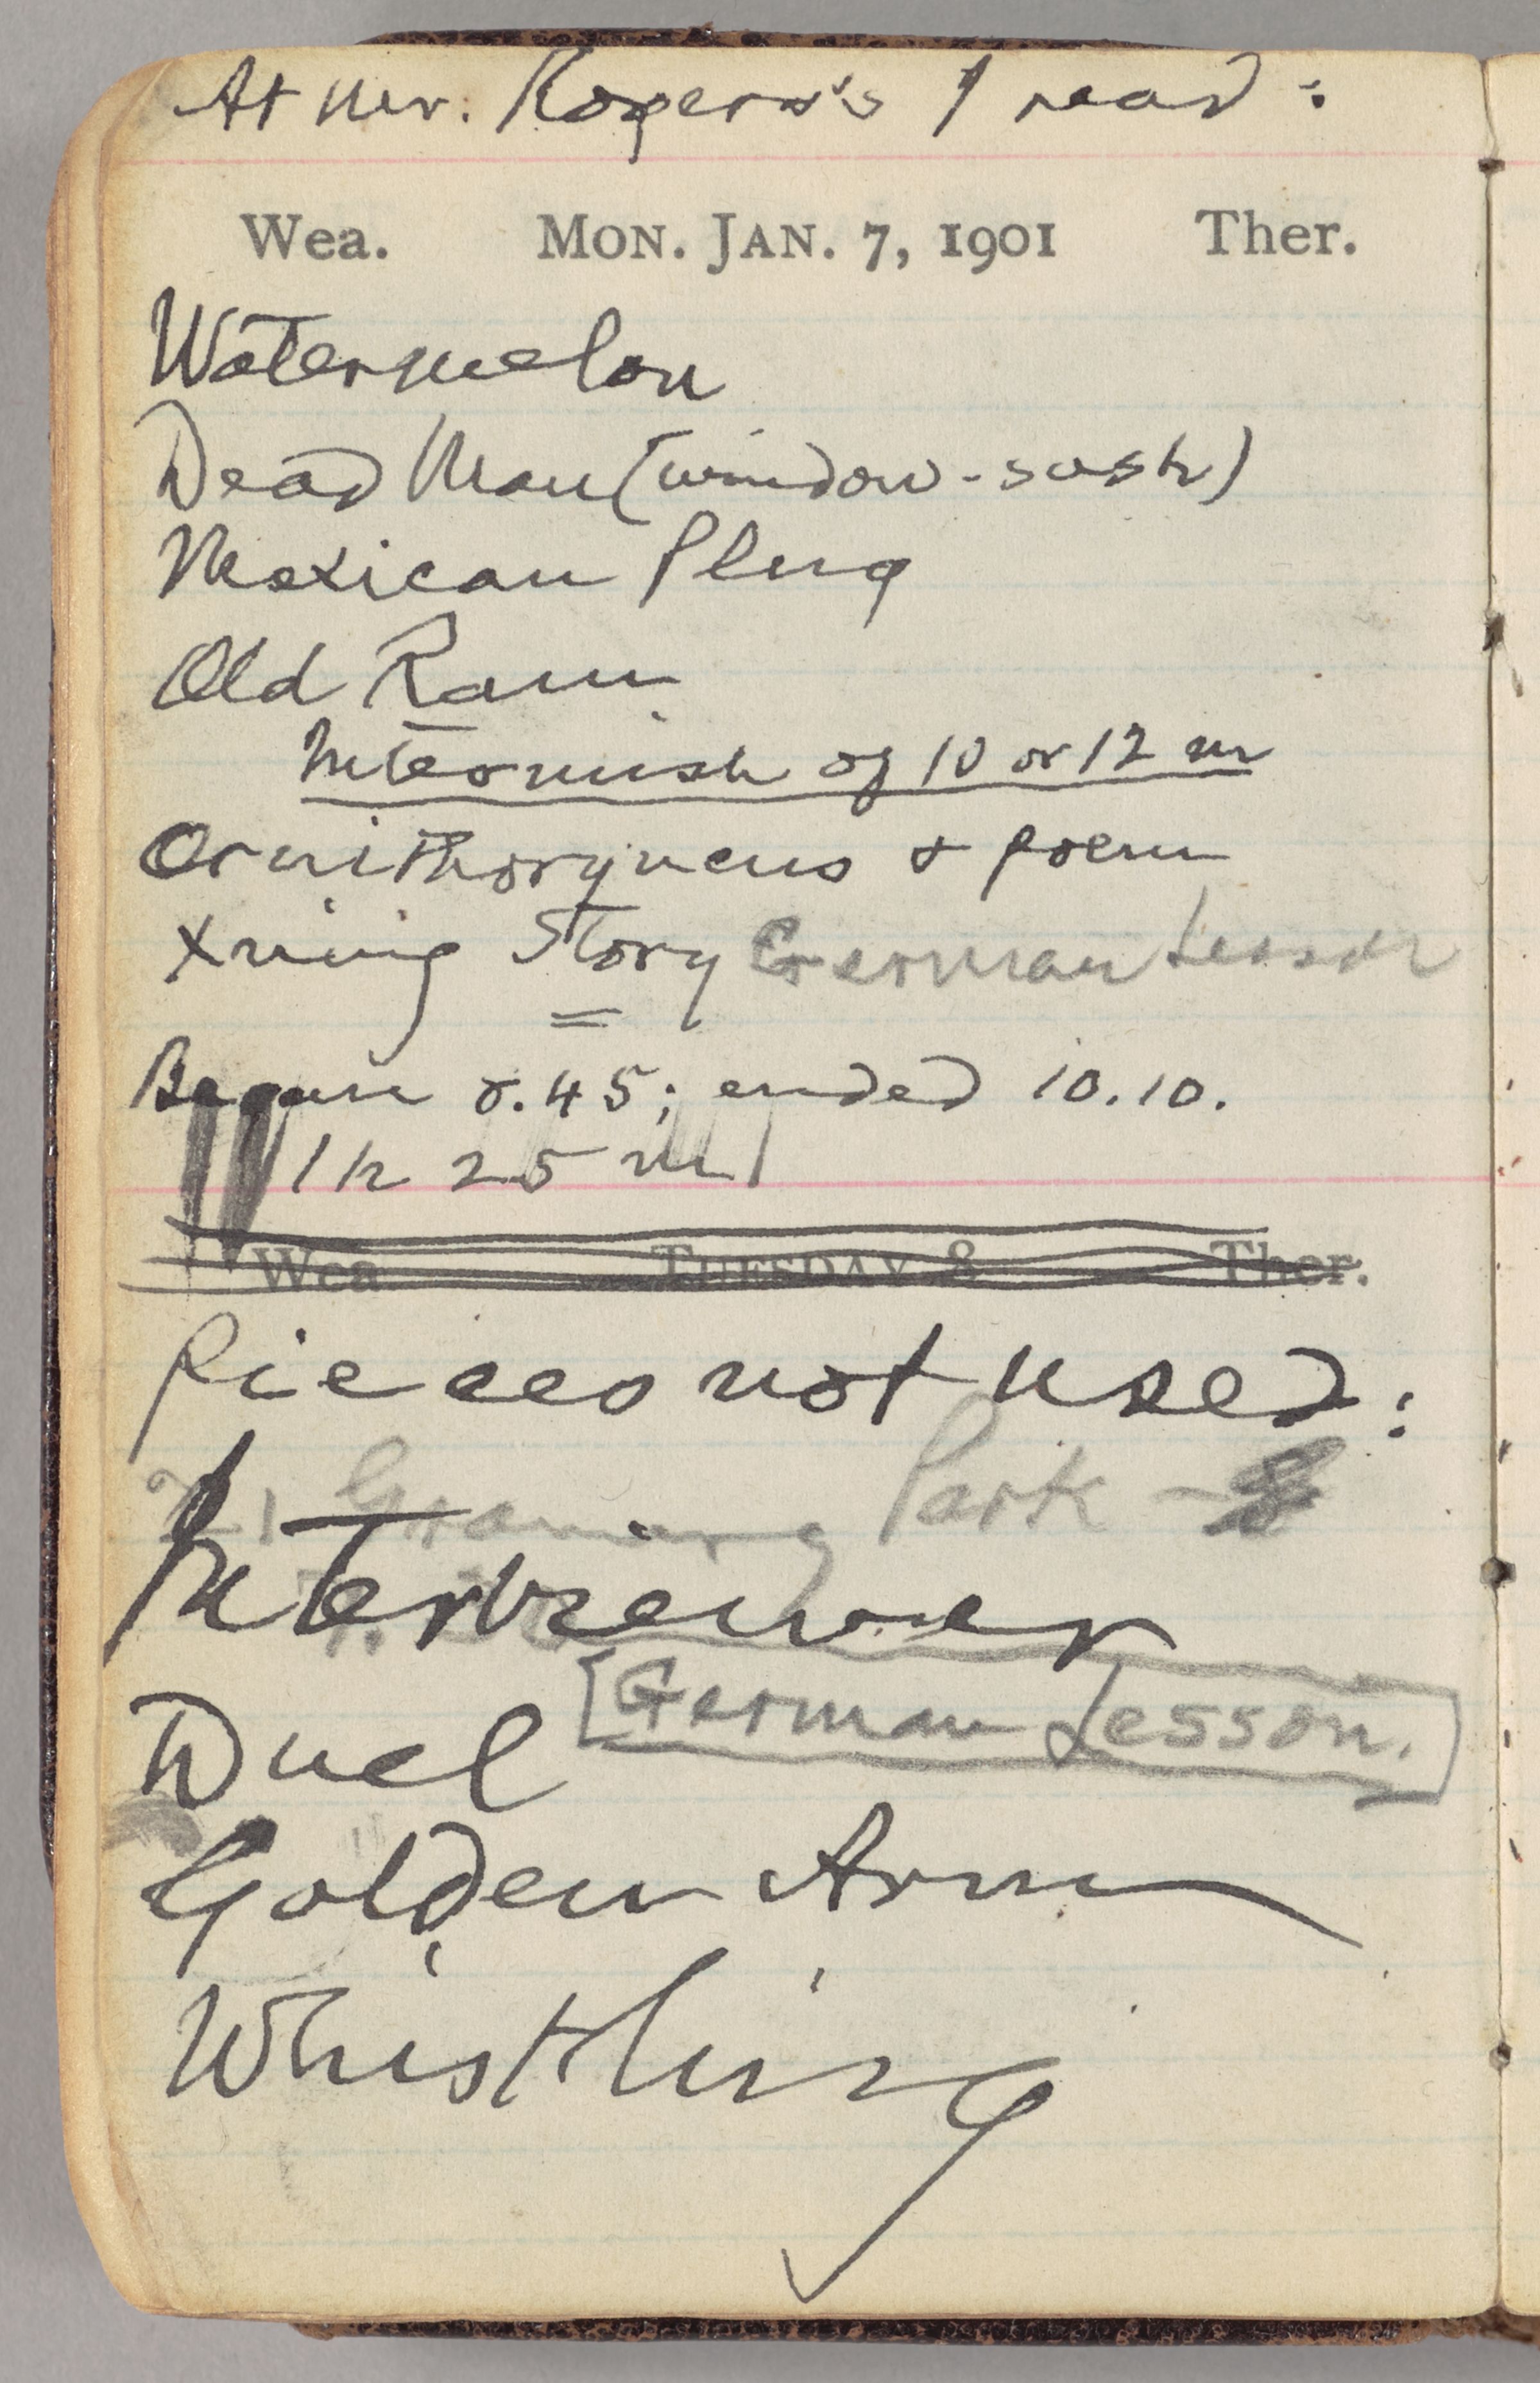 At Mr. Rogers's I read:
Wea. MON. JAN. 7, 1901 Ther.
Watermelon
Dead Man (window-sash)
Mexican Plug
Old Ram
Intermish of 10 or 12 m
Ornithoryncus & poem
Xning Story German Lesson
Began 8.45; ended 10.10.
1 h 25 m
Wea TUESDAY 8 Ther.
Pieces not used:
Gramercy Park
Interviewer
[German Lesson.]
Duel
Golden Arm
Whistling